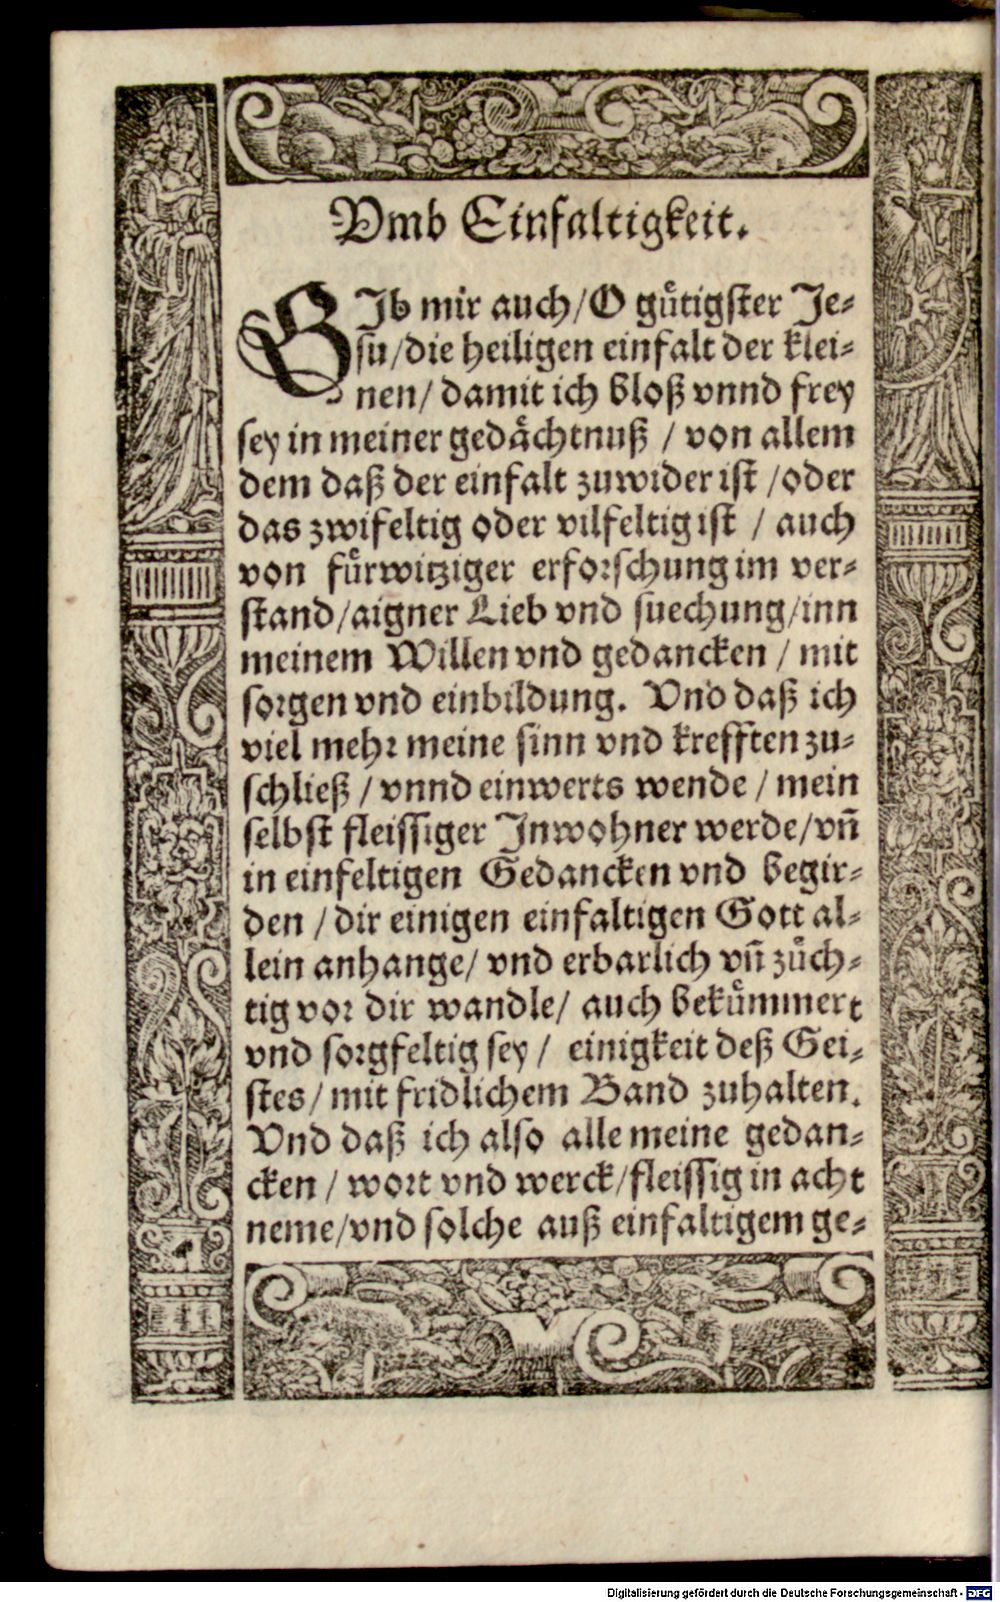 Vmb Einfaltigkeit.
GIb mir auch/O guͤtigster Je⸗
su/die heiligen einfalt der klei⸗
nen/ damit ich bloß vnnd frey
sey in meiner gedaͤchtnuß / von allem
dem daß der einfalt zuwider ist /oder
das zwifeltig oder vilfeltig ist / auch
von fuͤrwitziger erforschung im ver⸗
stand/aigner Lieb vnd suechung/inn
meinem Willen vnd gedancken / mit
sorgen vnd einbildung. Vnd daß ich
viel mehr meine sinn vnd krefften zu⸗
schließ / vnnd einwerts wende / mein
selbst fleissiger Inwohner werde/vñ
in einfeltigen Gedancken vnd begir⸗
den / dir einigen einfaltigen Gott al⸗
lein anhange/ vnd erbarlich vñ zuͤch⸗
tig vor dir wandle/ auch bekuͤmmert
vnd sorgfeltig sey / einigkeit deß Gei⸗
stes/ mit fridlichem Band zuhalten.
Vnd daß ich also alle meine gedan⸗
cken / wort vnd werck/fleissig in acht
neme/vnd solche auß einfaltigem ge⸗
Digitalisierung gefördert durch die Deutsche Forschungsgemeinschaft - DFG